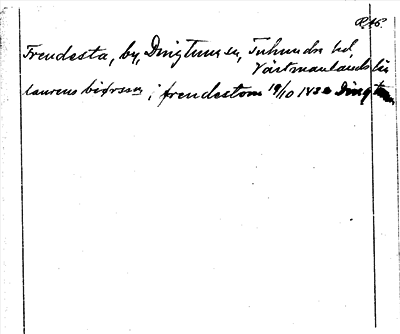 RAp.
Frendesta, by, Dingtuna sn, Tuhundra hd
Västmanlands län
laurens biørssn i frendestom 19/10 1482 Dingtuna